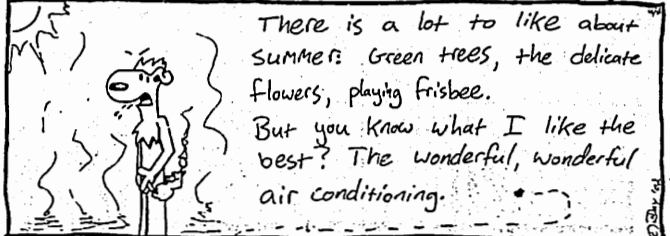 There is a lot to like about
summer: Green trees, the delicate
flowers, playing frisbee.
But you know what I like the
best? The wonderful, wonderful
air conditioning.